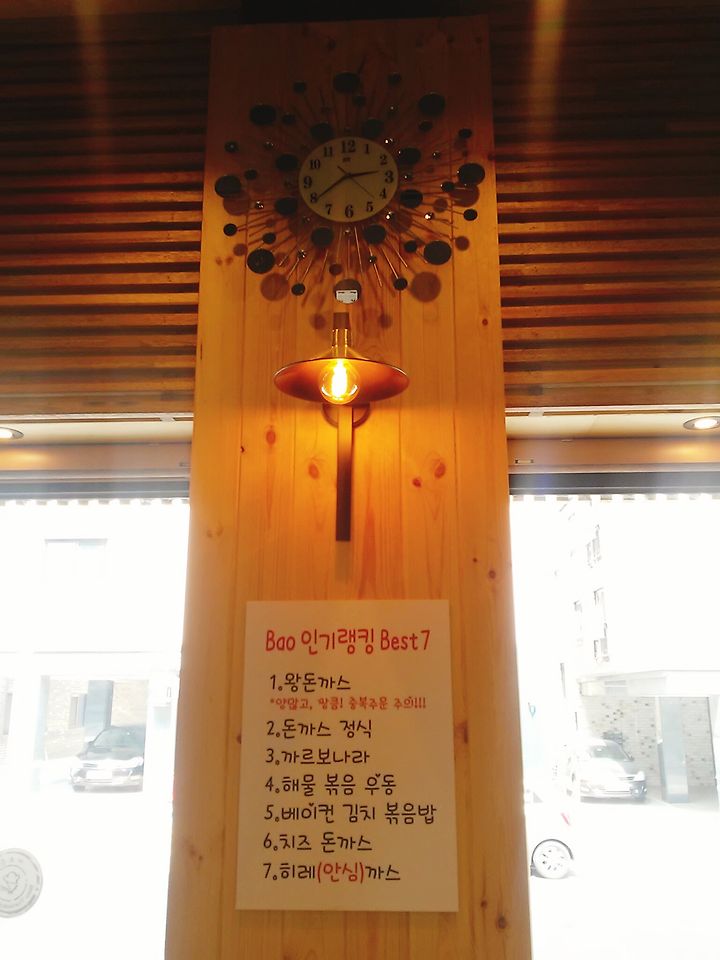 12
1
2
3
4
5
6
7
8
9
10
11
Bao 인기랭킹 Best 7
1. 왕돈까스
*양많고, 왕큼! 중복주문 주의!!!
2. 돈까스 정식
3. 까르보나라
4. 해물 볶음 우동
5. 베이컨 김치 볶음밥
6. 치즈 돈까스
7. 히레(안심)까스